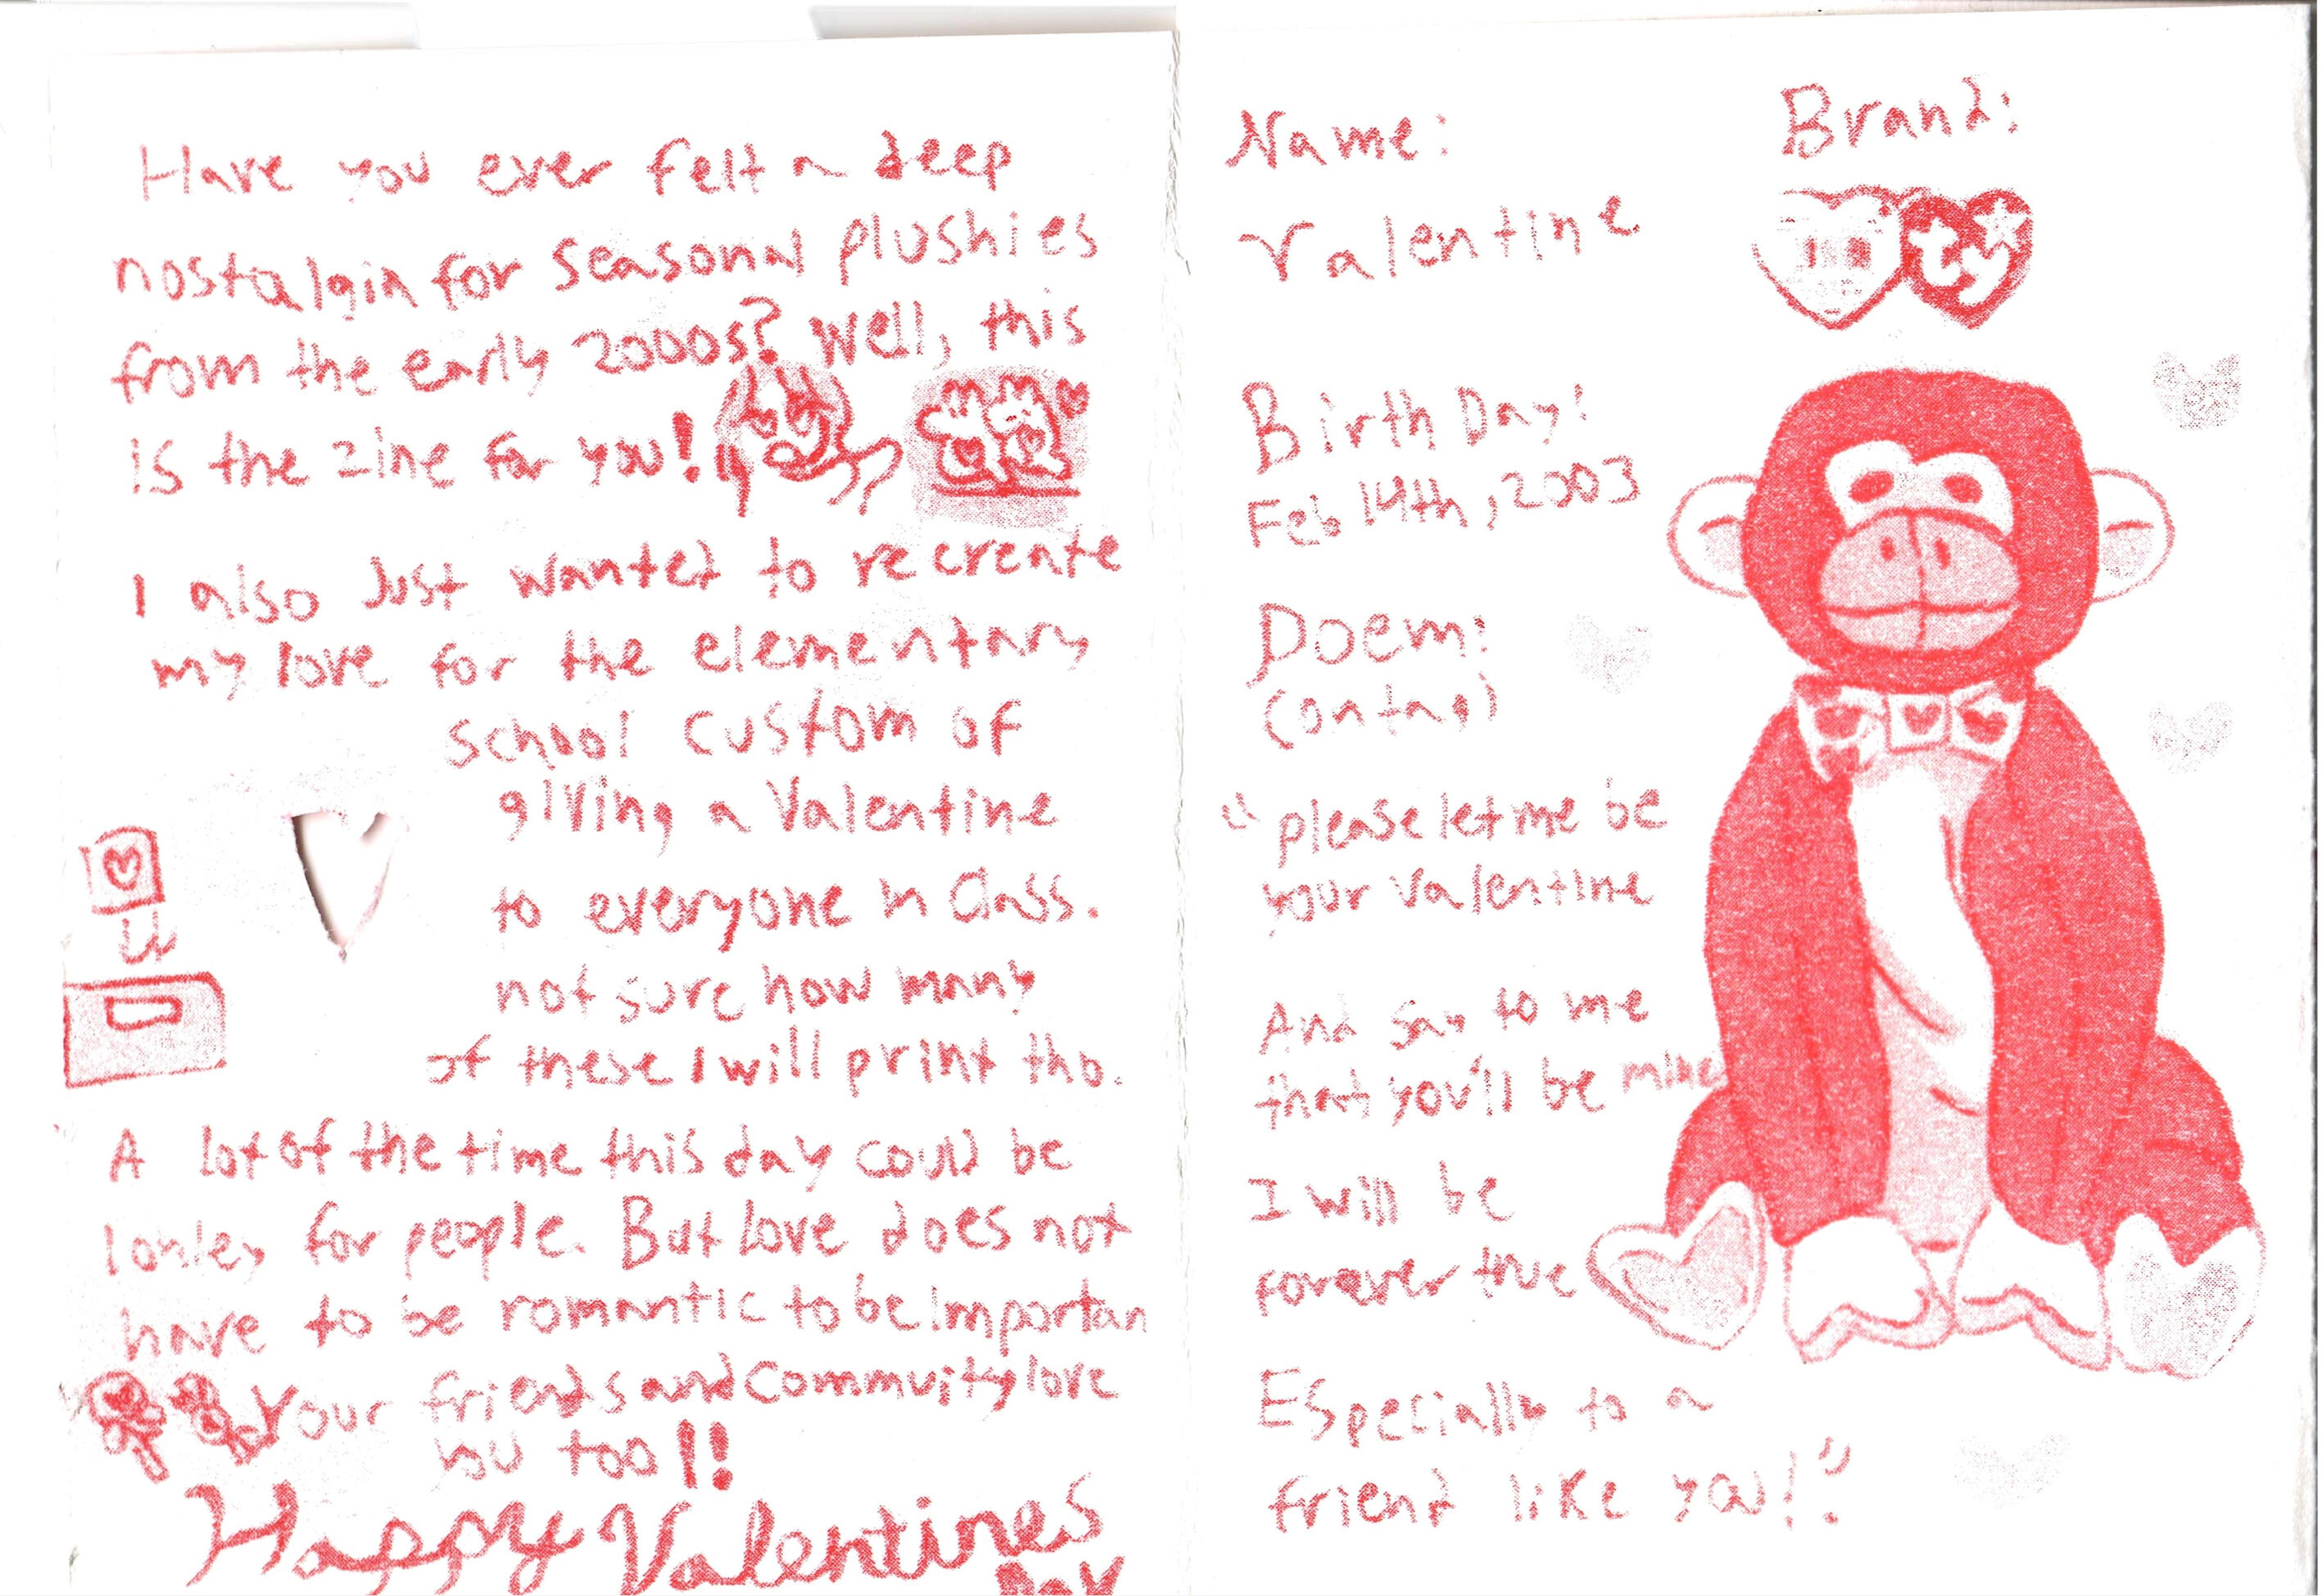 Have you ever felt a deep
nostalgia for seasonal plushies
from the early 2000s? Well, this
is the zine for you!
I also Just wanted to recreate
my love for the elementary
school custom of
giving a Valentine
to everyone in Class.
not sure how many
of these I will print tho.
A lot of the time this day could be
lonley for people. But Love does not
have to be romantic to be importan
Your friends and Commuity love
you too!!
Happy Valentines
Day
Name:
Valentine
Brand:
ty
Birth Day:
Feb 14th, 2003
Poem:
(on tag)
"please let me be
your Valentine
And say to me
that you'll be mine
I will be
forever true
Especially to a
friend like you!"